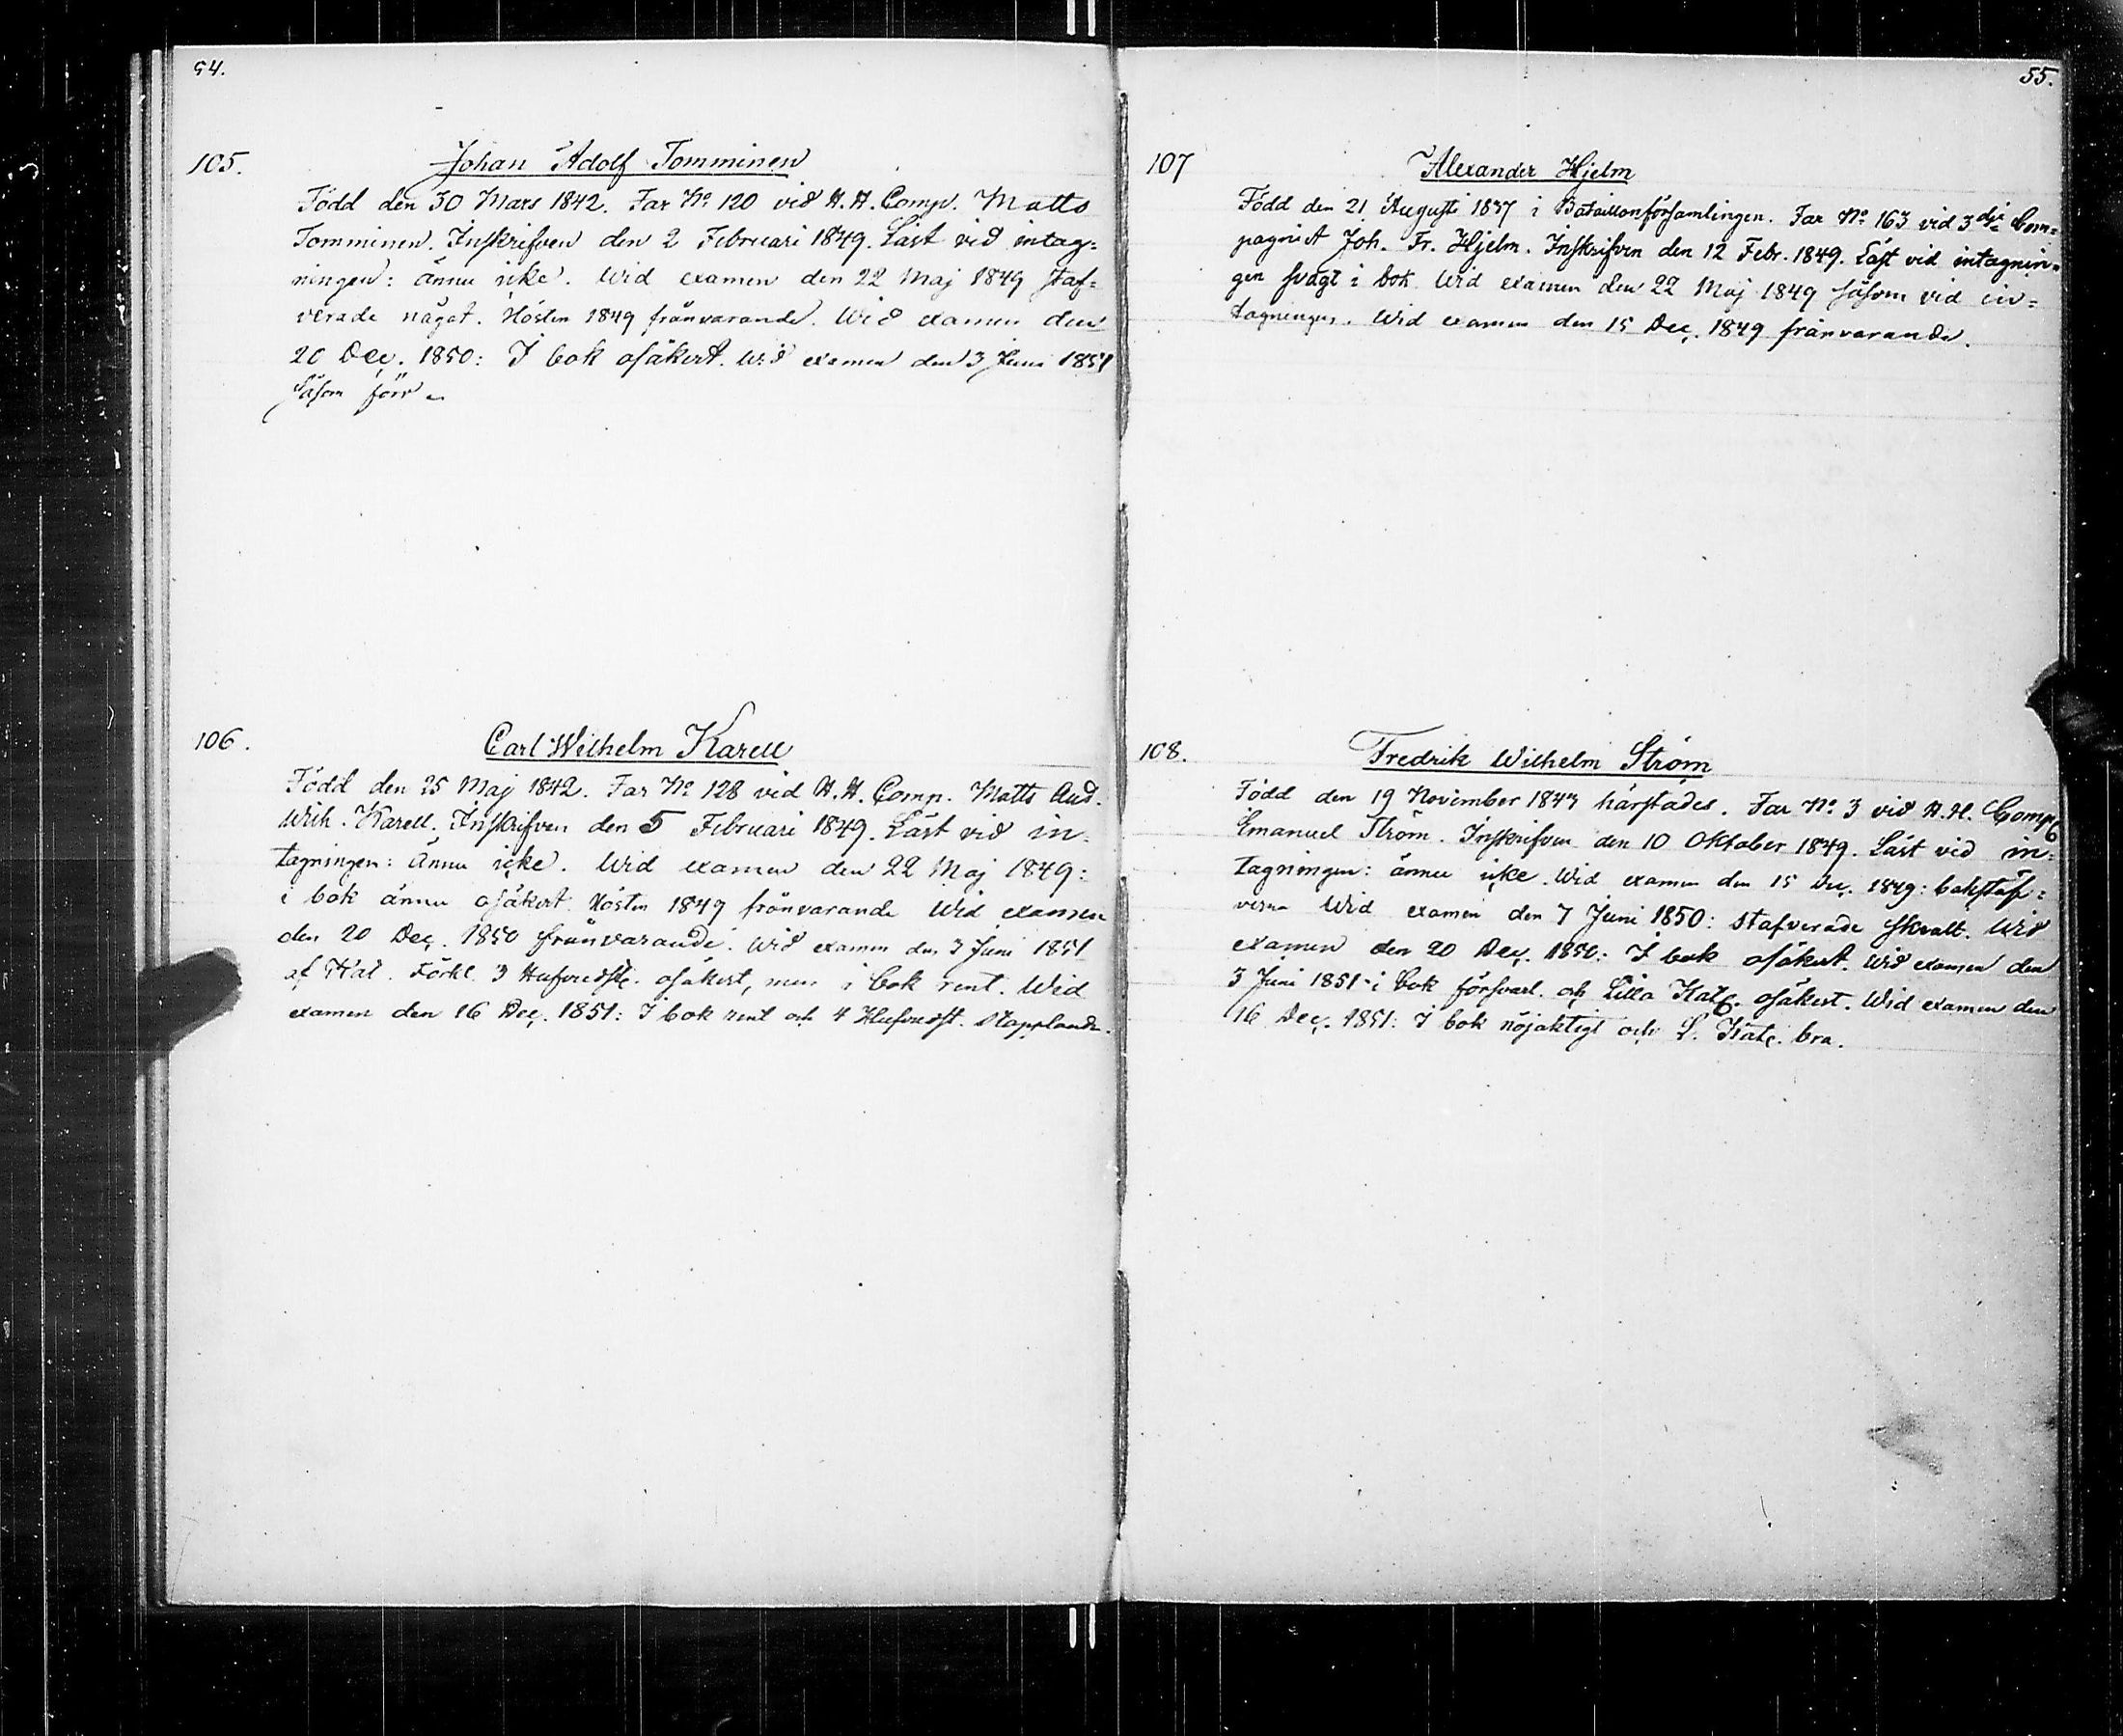 54.
105.
Johan Adolf Tomminen
Född den 30 Mars 1842. Far No 120 vid H. H. Comp. Matts
Tomminen. Inskrifven den 2 Februari 1849. Läst vid intag=
ningen: ännu icke. Wid examen den 22 Maj 1849 staf=
verade något. Hösten 1849 frånvarande. Wid examen den
20 Dec. 1850: I bok osäkert. Wid examen den 3 Juni 1851
såsom förr
106.
Carl Wilhelm Karell
Född den 25 Maj 1842. Far No 128 vid H. H. Comp. Matts And.
Wilh. Karell. Inskrifven den 5 Februari 1849. Läst vid in=
tagningen: ännu icke. Wid examen den 22 Maj 1849:
i bok ännu osäkert. Hösten 1849 frånvarande Wid examen
den 20 Dec. 1850 frånvarande. Wid examen den 3 Juni 1851
af Kat. Förkl. 3 Hufvudst. osäkert, men i bok rent. Wid
examen den 16 Dec. 1851: I bok rent och 4 Hufvudst. stapplande.
55.
107
Alexander Hjelm
Född den 21 Augusti 1837 i Bataillonförsamlingen. Far No 163 vid 3dje Com=
pagniet Joh. Fr. Hjelm. Inskrifven den 12 Febr. 1849. Läst vid intagnin=
gen svagt i bok. Wid examen den 22 Maj 1849 såsom vid in=
tagningen. Wid examen den 15 Dec. 1849 frånvarande.
108.
Fredrik Wilhelm Ström
Född den 19 November 1843 härstädes. Far No 3 vid H. H. Comp.
Emanuel Ström. Inskrifven den 10 Oktober 1849. Läst vid in=
tagningen: ännu icke. Wid examen den 15 Dec. 1849: bokstäf=
verna Wid examen den 7 Juni 1850: stafverade skralt. Wid
examen den 20 Dec. 1850: I bok osäkert. Wid examen den
3 Juni 1851: i bok försvarl. och Lilla Katec. osäkert. Wid examen den
16 Dec. 1851: I bok nöjaktigt och L. Katec. bra.